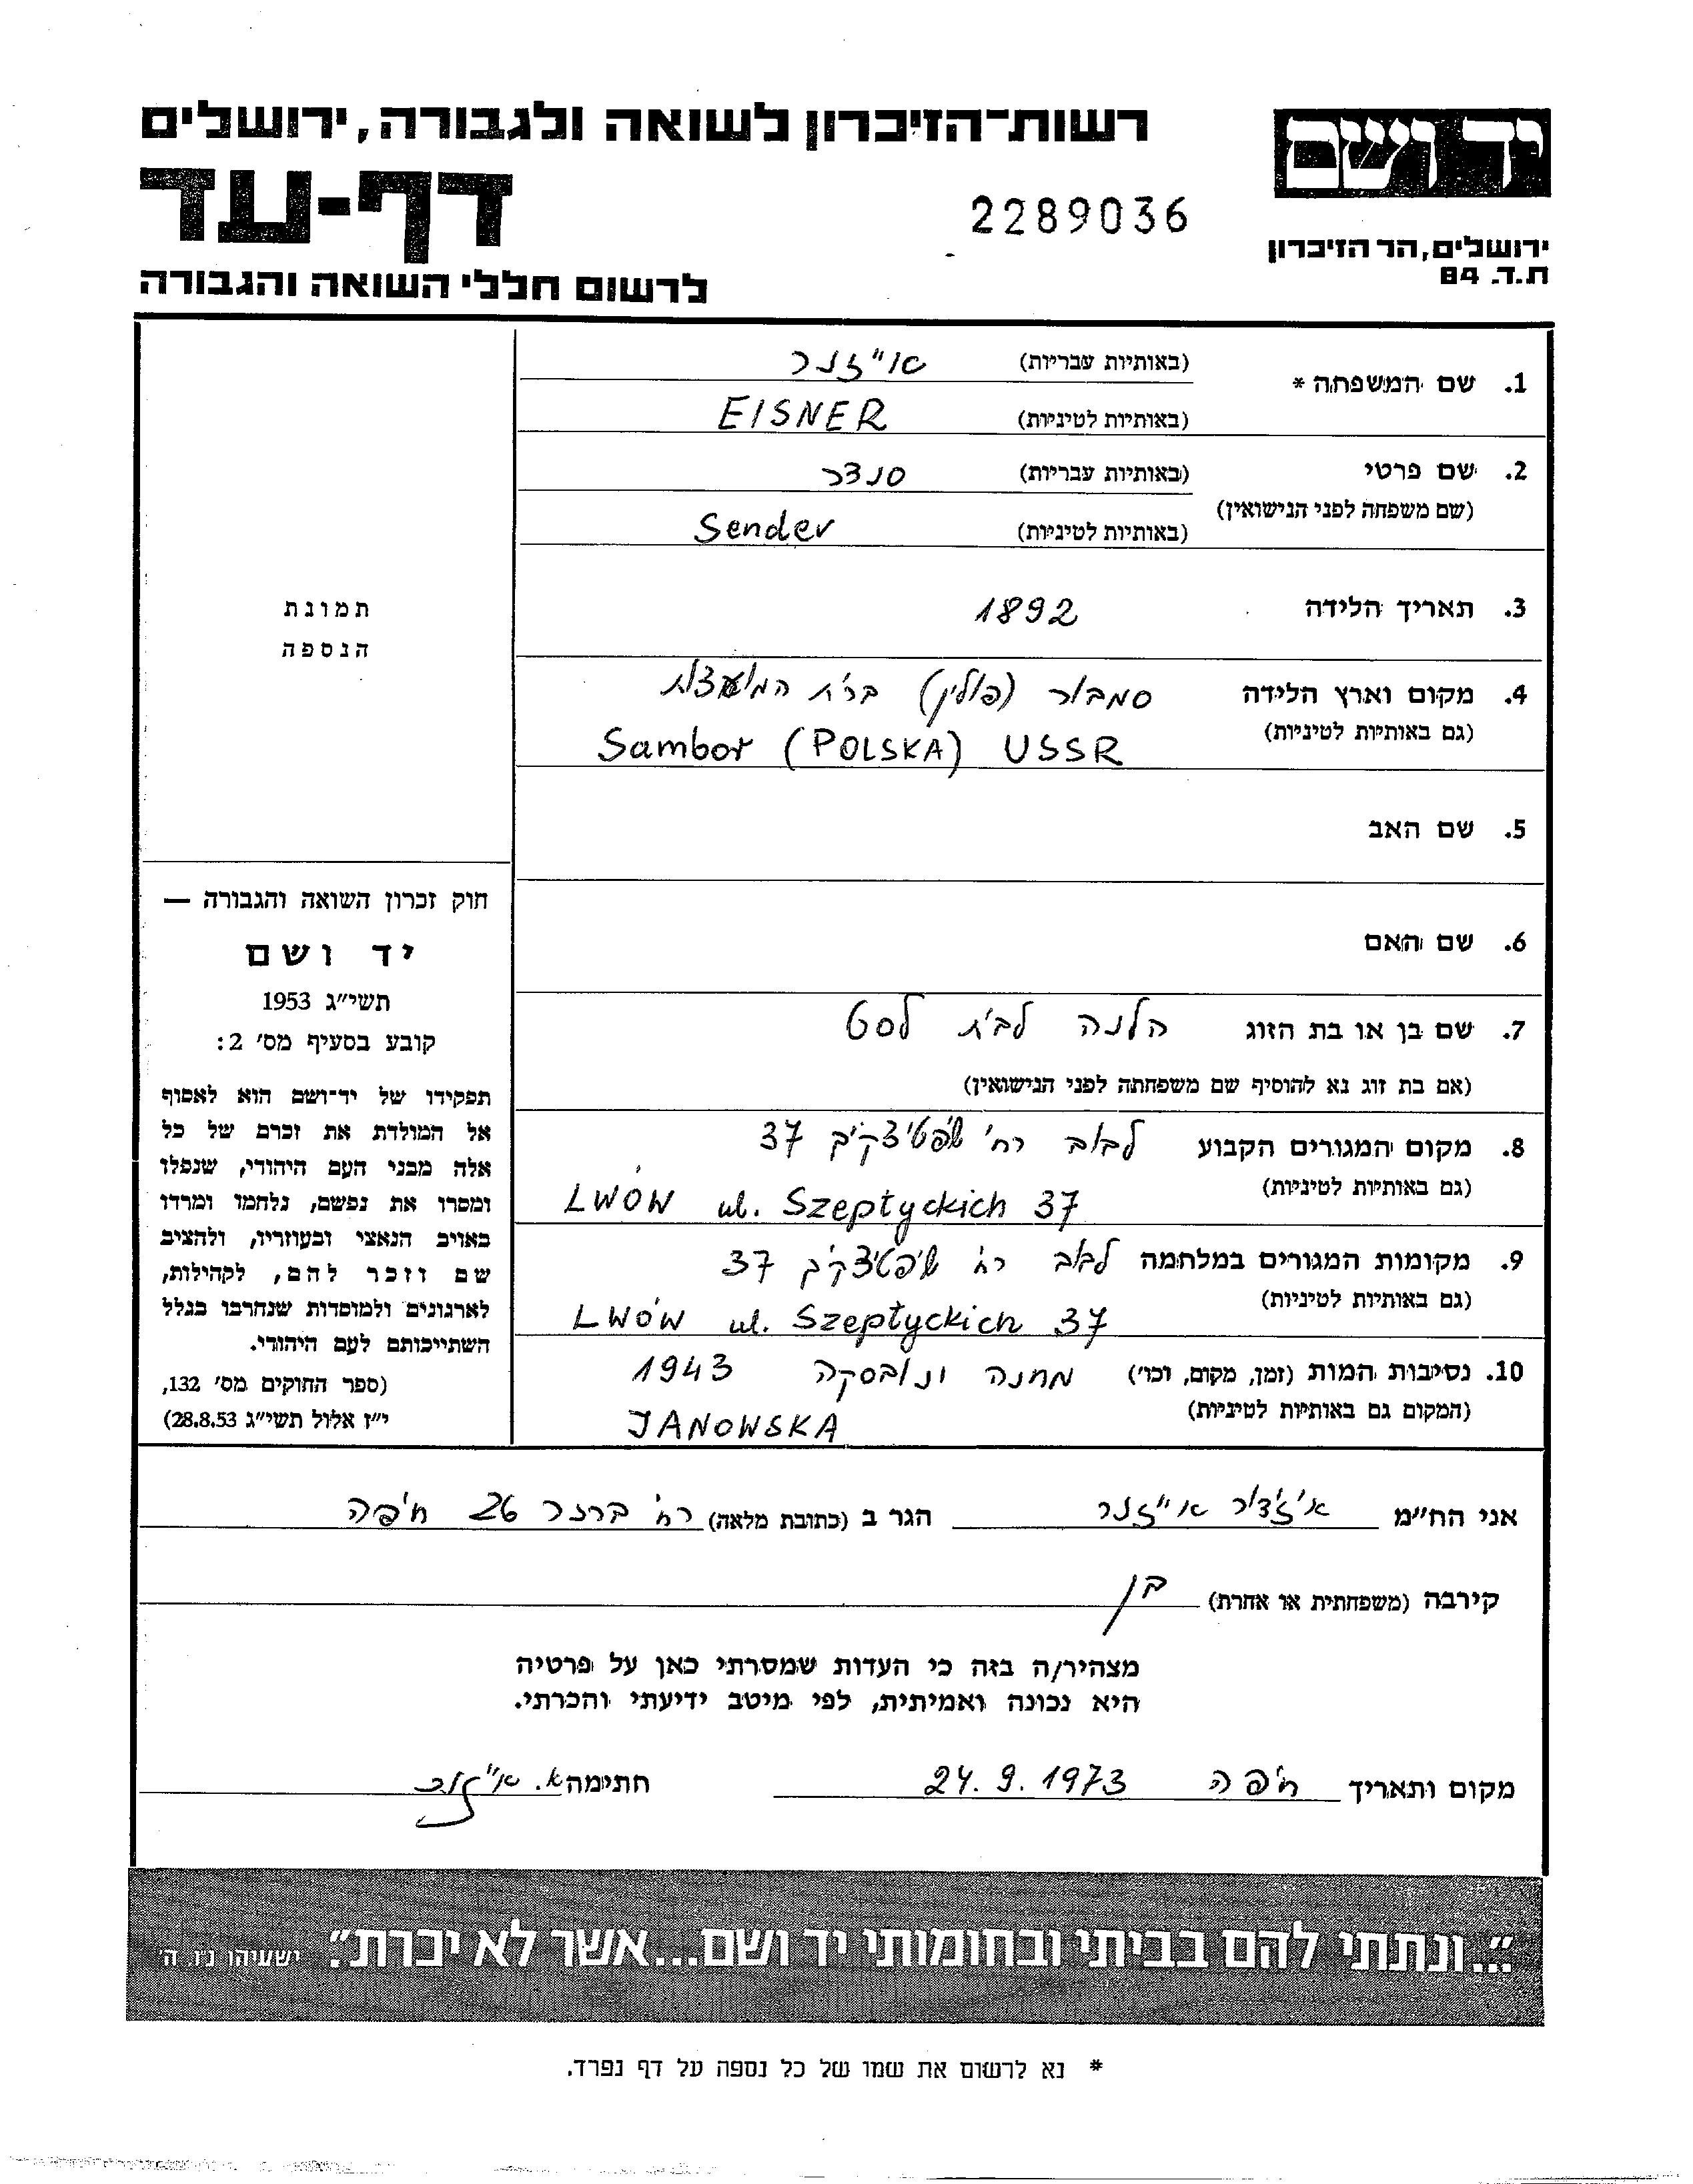 רשות־הזיכרון לשואה ולגבורה, ירושלים
יד ושם
דף-עד
2289036
ירושלים, הר הזיכרון
ת.ד. 84
לרשום חללי השואה והגבורה
1. שם המשפחה * (באותיות עבריות) אייזנר
(באותיות לטיניות) EISNER
2. שם פרטי (באותיות עבריות) סנדר
(שם משפחה לפני הנישואין)
(באותיות לטיניות) Sender
3. תאריך הלידה 1892
4. מקום וארץ הלידה סמבור (פולין) ברית המועצות
(גם באותיות לטיניות) Sambor (POLSKA) USSR
5. שם האב
6. שם האם
7. שם בן או בת הזוג הלנה לבית לסט
(אם בת זוג נא להוסיף שם משפחתה לפני הנישואין)
8. מקום המגורים הקבוע לבוב רח' שפטיצקיך 37
(גם באותיות לטיניות) LWÓW ul. Szeptyckich 37
9. מקומות המגורים במלחמה לבוב רח' שפטיצקיך 37
(גם באותיות לטיניות) LWÓW ul. Szeptyckich 37
10. נסיבות המות (זמן, מקום, וכו') מחנה ינובסקה 1943
(המקום גם באותיות לטיניות) JANOWSKA
תמונת
הנספה
חוק זכרון השואה והגבורה —
יד ושם
תשי״ג 1953
קובע בסעיף מס' 2:
תפקידו של יד־ושם הוא לאסוף
אל המולדת את זכרם של כל
אלה מבני העם היהודי, שנפלו
ומסרו את נפשם, נלחמו ומרדו
באויב הנאצי ובעוזריו, ולהציב
שם וזכר להם, לקהילות,
לארגונים ולמוסדות שנחרבו בגלל
השתייכותם לעם היהודי.
(ספר החוקים מס' 132,
י״ז אלול תשי״ג 28.8.53)
אני הח״מ איזידור אייזנר הגר ב (כתובת מלאה) רח' ברנר 26 חיפה
קירבה (משפחתית או אחרת) בן
מצהיר/ה בזה כי העדות שמסרתי כאן על פרטיה
היא נכונה ואמיתית, לפי מיטב ידיעתי והכרתי.
מקום ותאריך חיפה 24.9.1973 חתימה א. אייזנר
"...ונתתי להם בביתי ובחומותי יד ושם...אשר לא יכרת". ישעיהו נ״ו, ה'
* נא לרשום את שמו של כל נספה על דף נפרד.